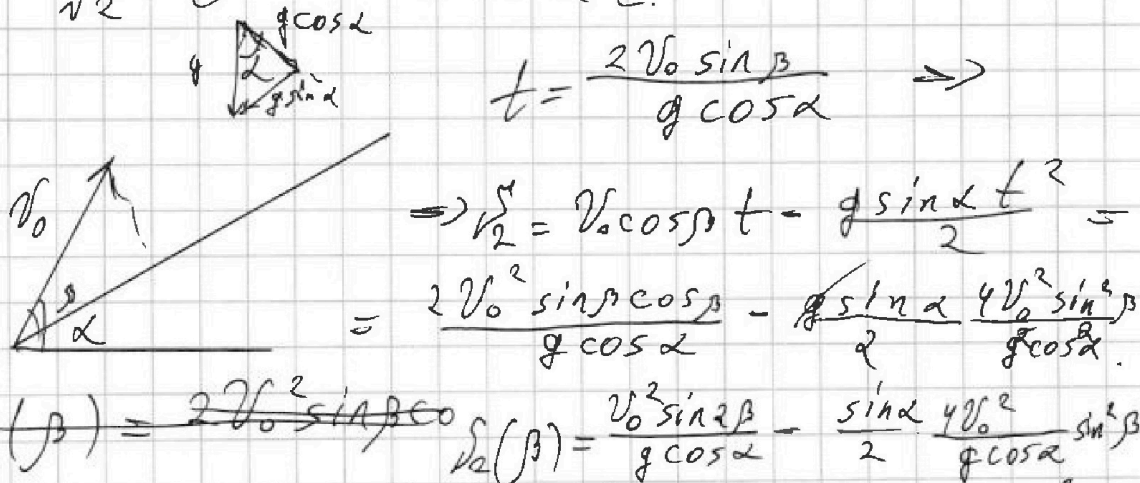 √2
g cos α
g α
g sin α
t = 2V₀ sin β / g cos α =>
V₀ β α
=> S₂ = V₀ cos β t - g sin α t² / 2 =
= 2V₀² sin β cos β / g cos α - g sin α / 2 4V₀² sin² β / g² cos² α .
(β) = 2V₀² sin β co S₂(β) = V₀² sin 2β / g cos α - sin α / 2 4V₀² / g cos α sin² β